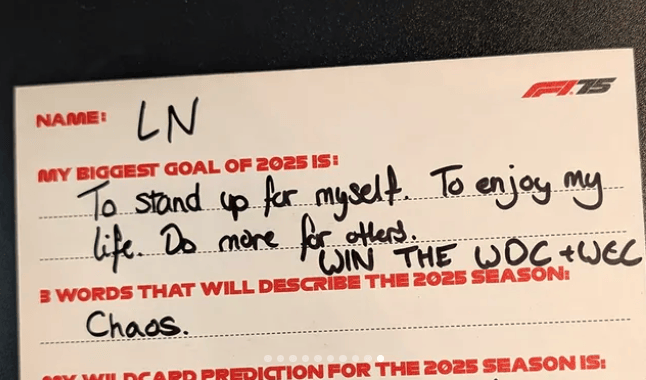 F1.75
NAME: LN
MY BIGGEST GOAL OF 2025 IS:
To stand up for myself. To enjoy my
life. Do more for others.
WIN THE WDC + WCC
3 WORDS THAT WILL DESCRIBE THE 2025 SEASON:
Chaos.
MY WILDCARD PREDICTION FOR THE 2025 SEASON IS: